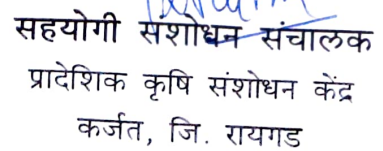 सहयोगी संशोधन संचालक
प्रादेशिक कृषि संशोधन केंद्र
कर्जत, जि. रायगड